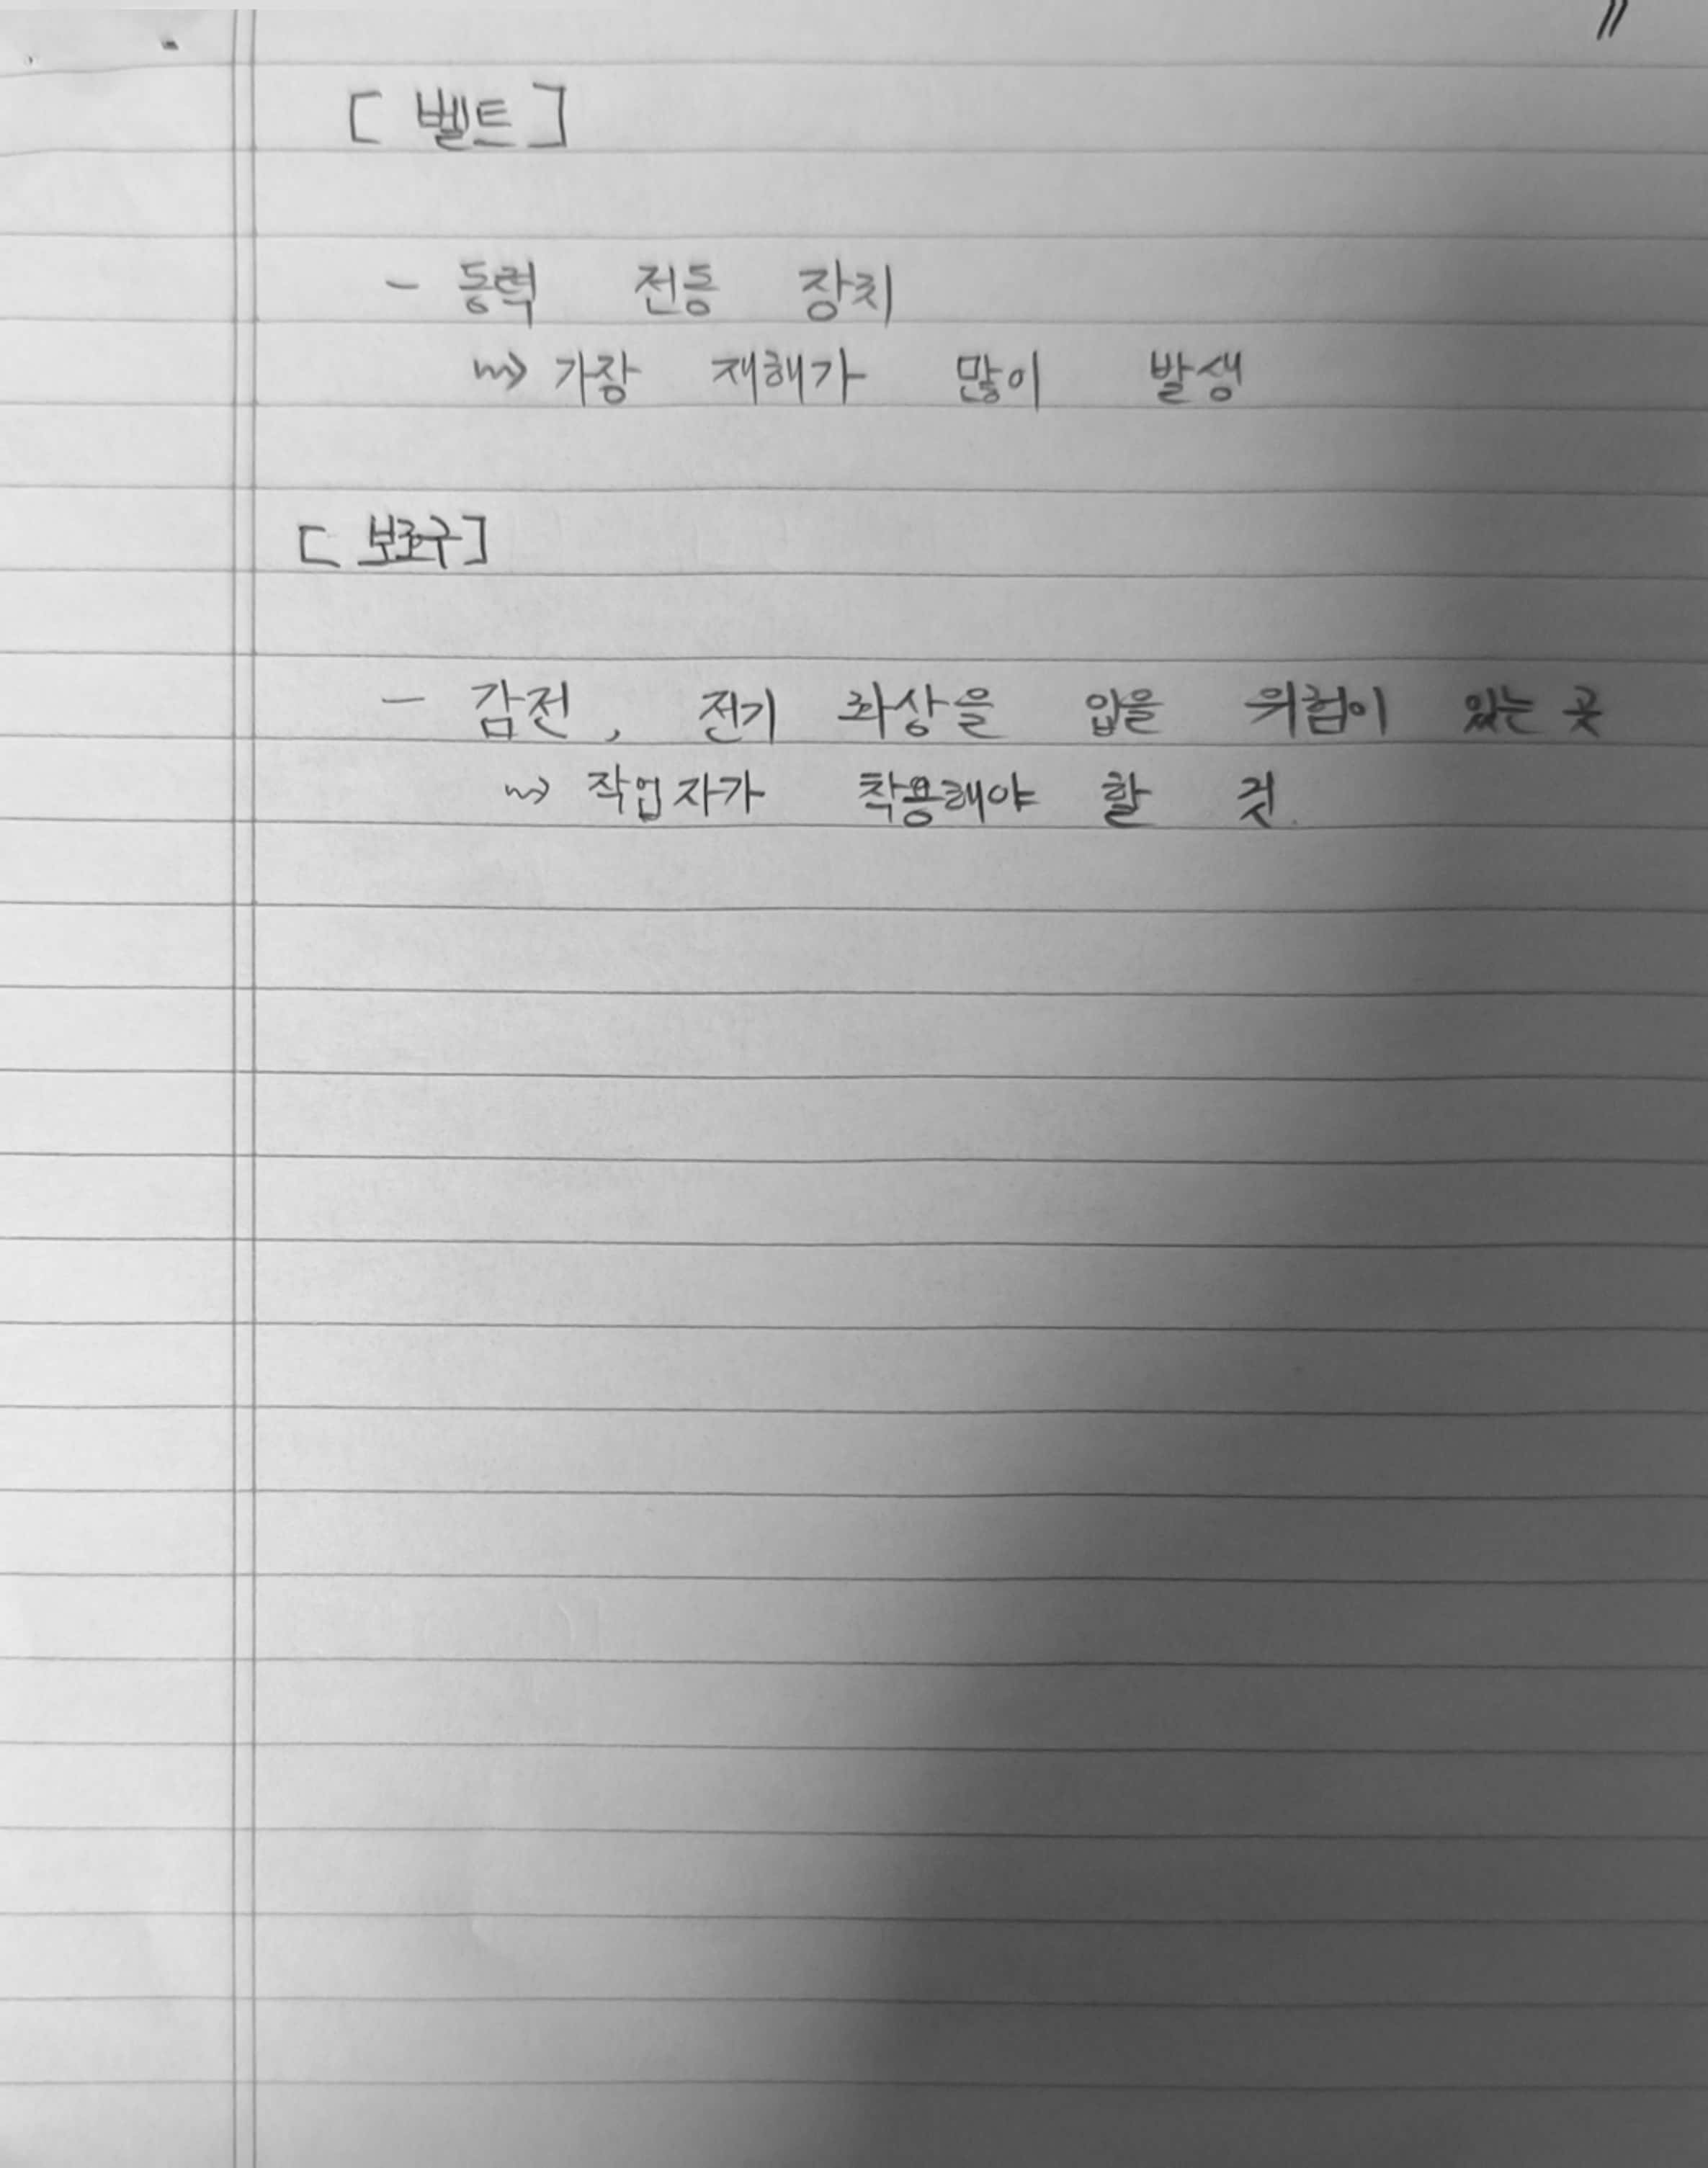 [ 벨트 ]
- 동력 전동 장치
⇝ 가장 재해가 많이 발생
[ 보호구 ]
- 감전, 전기 화상을 입을 위험이 있는 곳
⇝ 작업자가 착용해야 할 것.